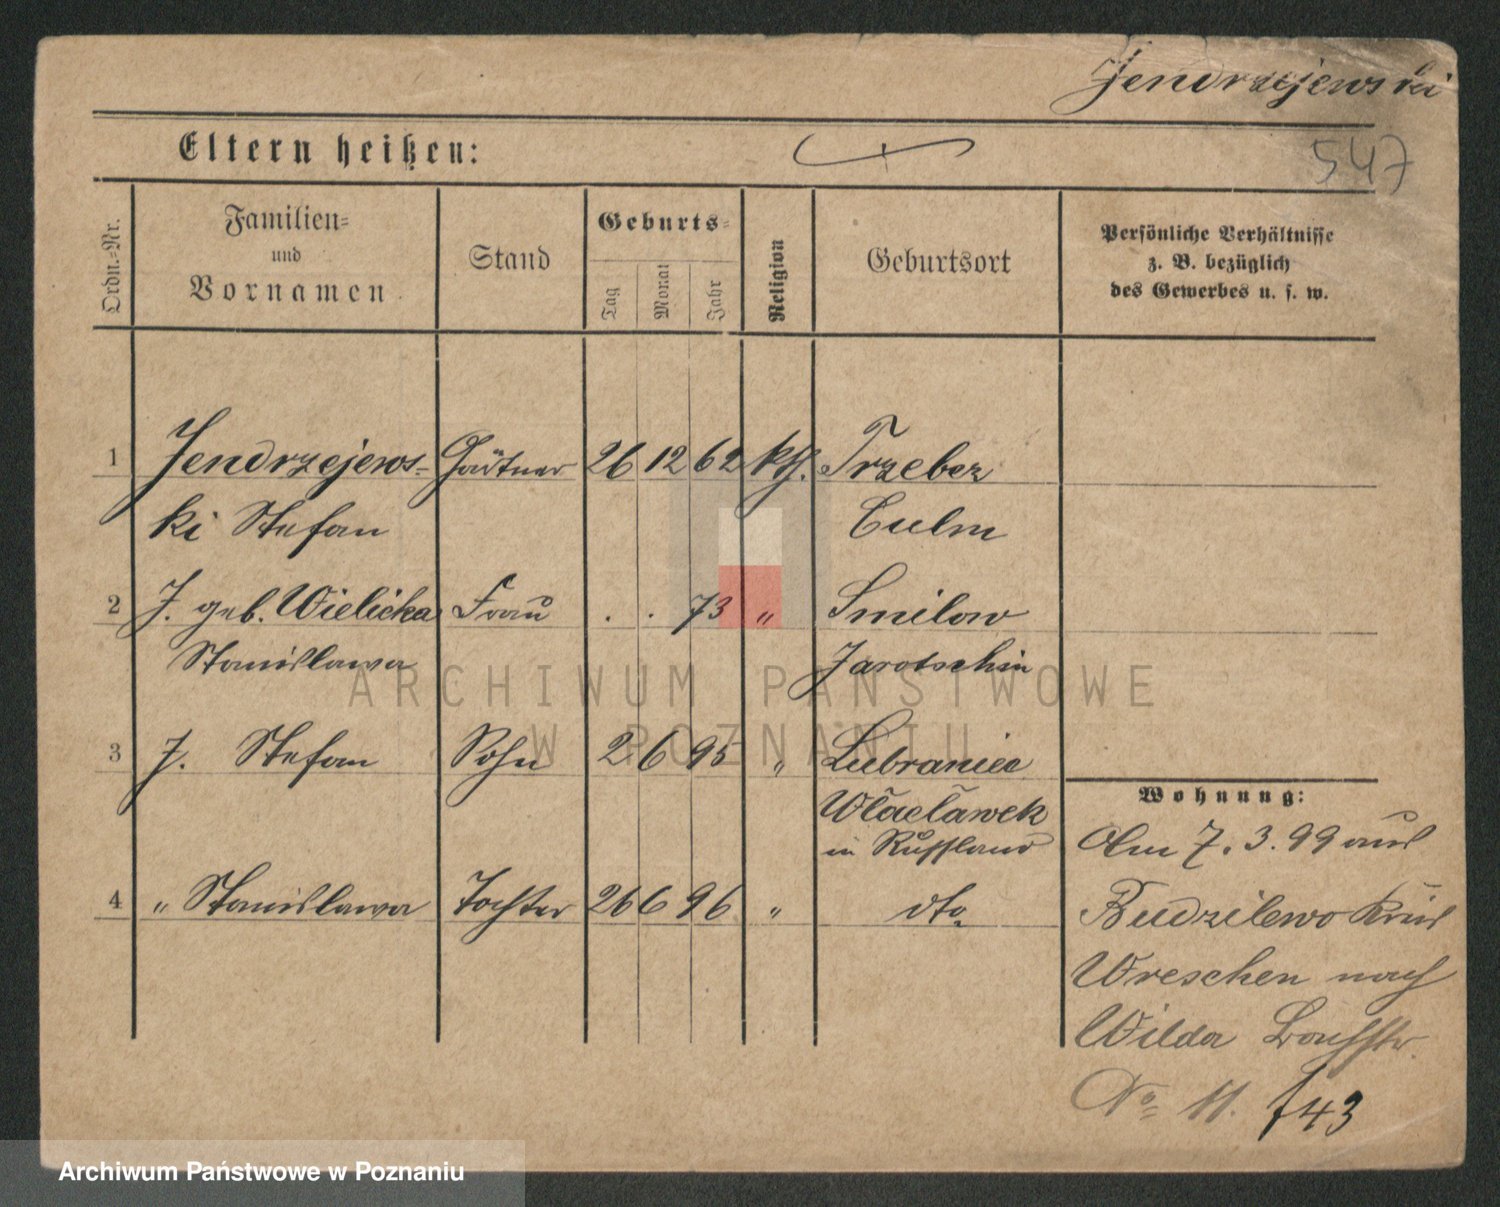 Jendrzejewski
Eltern heißen:
547
Ordn.-Nr.
Familien-
und
Vornamen
Stand
Geburts-
Tag
Monat
Jahr
Religion
Geburtsort
Persönliche Verhältnisse
z. B. bezüglich
des Gewerbes u. s. w.
1 Jendrzejews- Gärtner 26 12 62 kth. Trzebcz
ki Stefan Culm
2 J. geb. Wielicka Frau . . 73 " Smilow
Stanislawa Jarotschin
3 J. Stefan Sohn 2 6 95 " Lubraniec
Wlaclawek
in Russland
4 " Stanislawa Tochter 26 6 96 " dto
Wohnung:
Am 7. 3. 99 aus
Budzilewo Kreis
Wreschen nach
Wilda
No 11. 743
ARCHIWUM PAŃSTWOWE
W POZNANIU
Archiwum Państwowe w Poznaniu